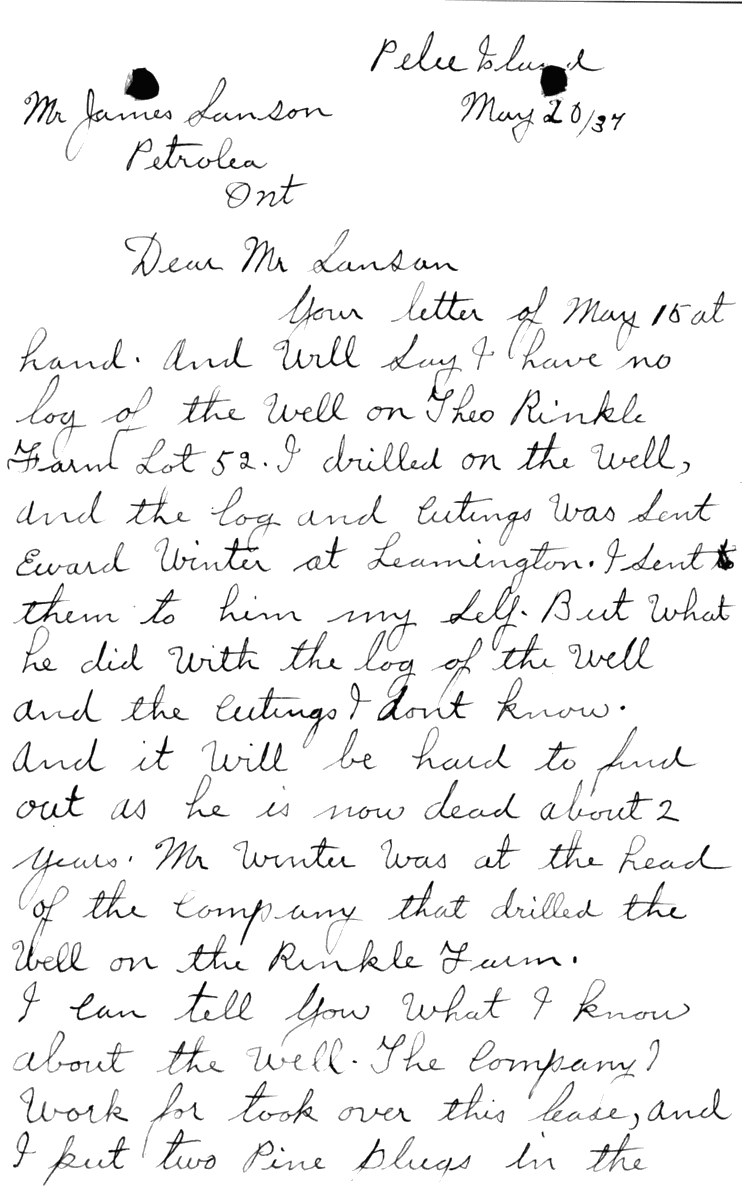 Pelee Island
Mr James Sanson May 20/37
Petrolea
Ont
Dear Mr Sanson
Your letter of May 15 at
hand. And Will Say I have no
log of the Well on Theo Rinkle
Farm Lot 52. I drilled on the Well,
and the log and Cutings Was Sent
Eward Winter at Leamington. I Sent
them to him my Self. But What
he did With the log of the Well
and the Cutings I dont know.
And it Will be hard to find
out as he is now dead about 2
years. Mr Winter Was at the head
of the Company that drilled the
Well on the Rinkle Farm.
I Can tell You What I know
about the Well. The Company I
Work for took over this lease, and
I put two Pine Plugs in the